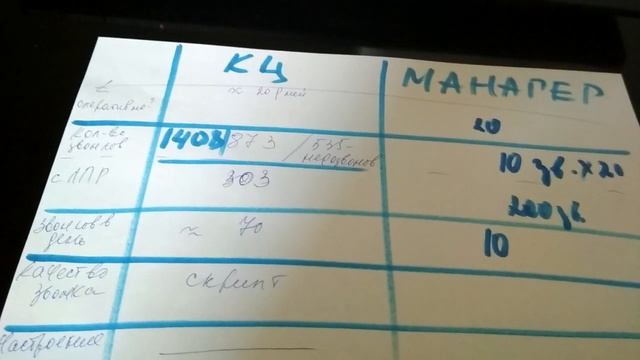 КЦ МАНАГЕР
оперативно? × 20 дней 20
Кол-во звонков 1408 873 / 535- недозвонов 10 зв. × 20
с ЛПР 303 200 зв.
Звонков в день ≈ 70 10
Качество звонка скрипт
Настроение